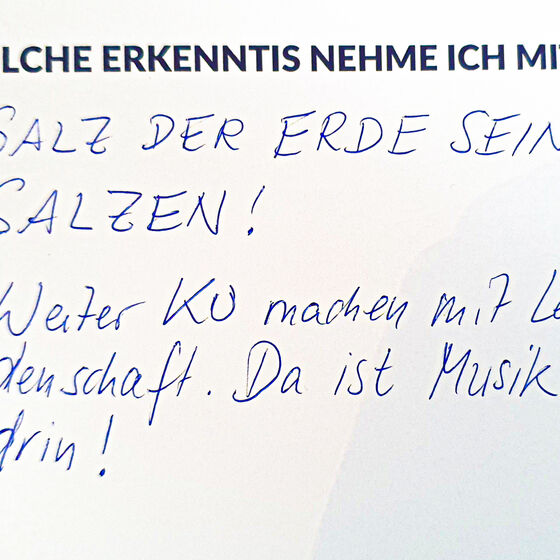 LCHE ERKENNTIS NEHME ICH MI
SALZ DER ERDE SEIN
SALZEN!
Weiter KU machen mit Le
denschaft. Da ist Musik
drin!